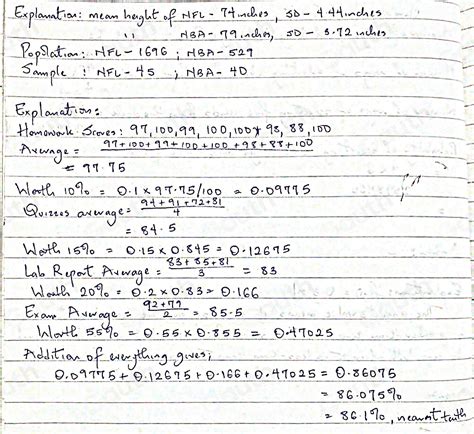 Explanation: mean height of NFL - 74 inches, SD - 4.44 inches
" NBA - 79 inches, SD - 3.72 inches
Population: NFL - 1696, NBA - 529
Sample : NFL - 45 ; NBA - 40
Explanation:
Homework Scores: 97, 100, 99, 100, 100, 98, 88, 100
Average = 97+100+99+100+100+98+88+100
= 97.75
Worth 10% = 0.1 x 97.75/100 = 0.09775
Quizzes average = 94+91+72+81 / 4
= 84.5
Worth 15% = 0.15 x 0.845 = 0.12675
Lab Report Average = 83+85+81 / 3 = 83
Worth 20% = 0.2 x 0.83 = 0.166
Exam Average = 92+79 / 2 = 85.5
Worth 55% = 0.55 x 0.855 = 0.47025
Addition of everything gives;
0.09775 + 0.12675 + 0.166 + 0.47025 = 0.86075
= 86.075%
= 86.1%, nearest tenth